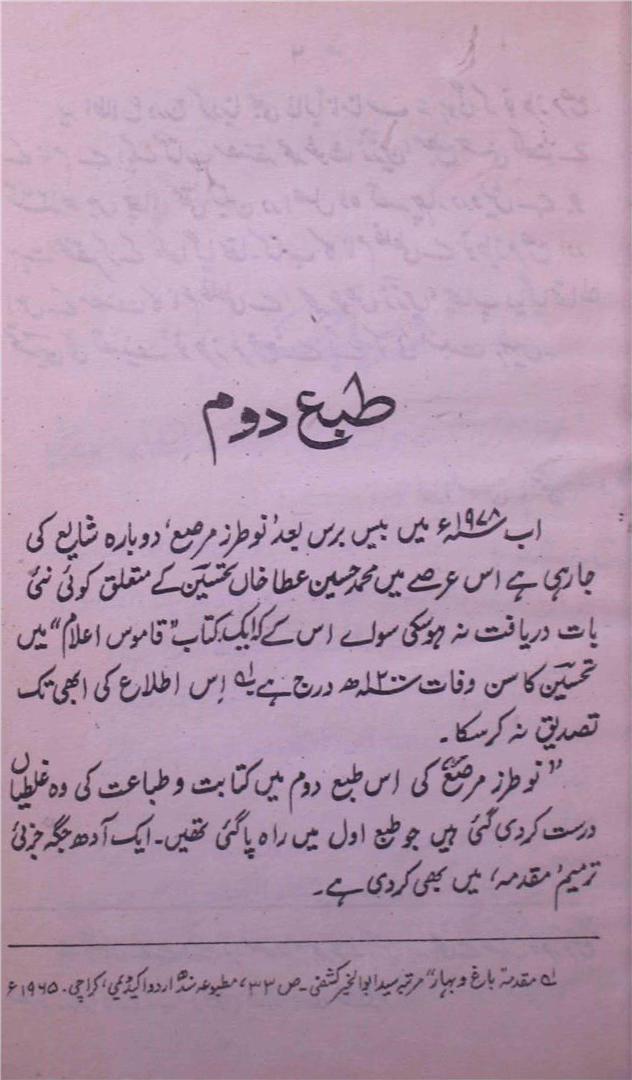 طبع دوم
اب ۱۹۷۸ء میں بیس برس بعد 'نوطرز مرصع' دوبارہ شایع کی
جا رہی ہے اس عرصے میں محمد حسین عطا خاں تحسینؔ کے متعلق کوئی نئی
بات دریافت نہ ہو سکی سواے اس کے کہ ایک کتاب "قاموس اعلام" میں
تحسینؔ کا سن وفات ۱۲۰۰ھ درج ہے لہ اِس اطلاع کی ابھی تک
تصدیق نہ کر سکا۔
"نوطرز مرصع" کی اس طبع دوم میں کتابت و طباعت کی وہ غلطیاں
درست کر دی گئی ہیں جو طبع اول میں راہ پا گئی تھیں۔ ایک آدھ جگہ جزئی
ترمیم 'مقدمہ' میں بھی کر دی ہے۔
لہ مقدمہ باغ و بہار" مرتبہ سید ابوالخیر کشفی۔ ص ۳۳، مطبوعہ سندھ اردو اکیڈیمی، کراچی۔ ۱۹۶۵ء